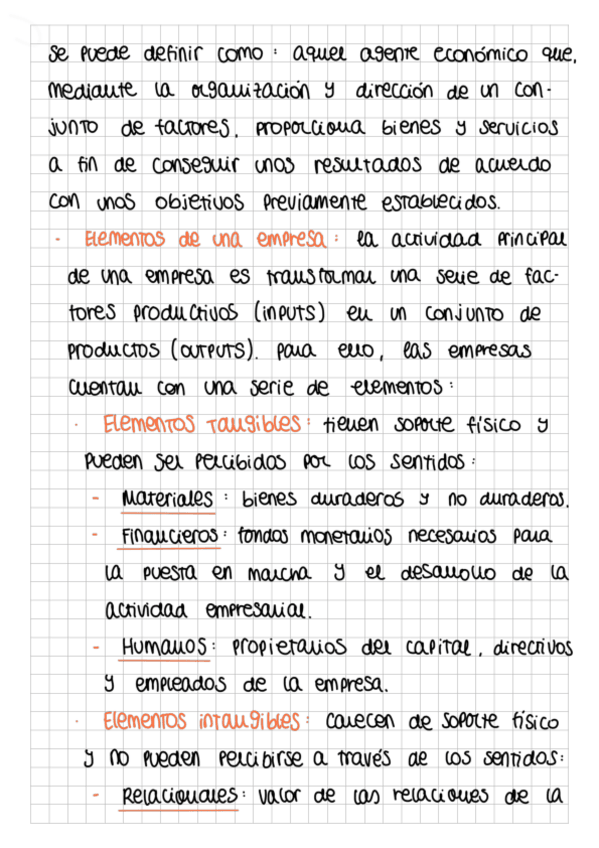 se puede definir como: aquel agente económico que,
mediante la organización y dirección de un con-
junto de factores, proporciona bienes y servicios
a fin de conseguir unos resultados de acuerdo
con unos objetivos previamente establecidos.
· Elementos de una empresa: la actividad principal
de una empresa es transformar una serie de fac-
tores productivos (inputs) en un conjunto de
productos (outputs). Para ello, las empresas
cuentan con una serie de elementos:
· Elementos tangibles: tienen soporte físico y
pueden ser percibidos por los sentidos:
- Materiales: bienes duraderos y no duraderos.
- Financieros: fondos monetarios necesarios para
la puesta en marcha y el desarrollo de la
actividad empresarial.
- Humanos: propietarios del capital, directivos
y empleados de la empresa.
· Elementos intangibles: carecen de soporte físico
y no pueden percibirse a través de los sentidos:
- Relacionales: valor de las relaciones de la